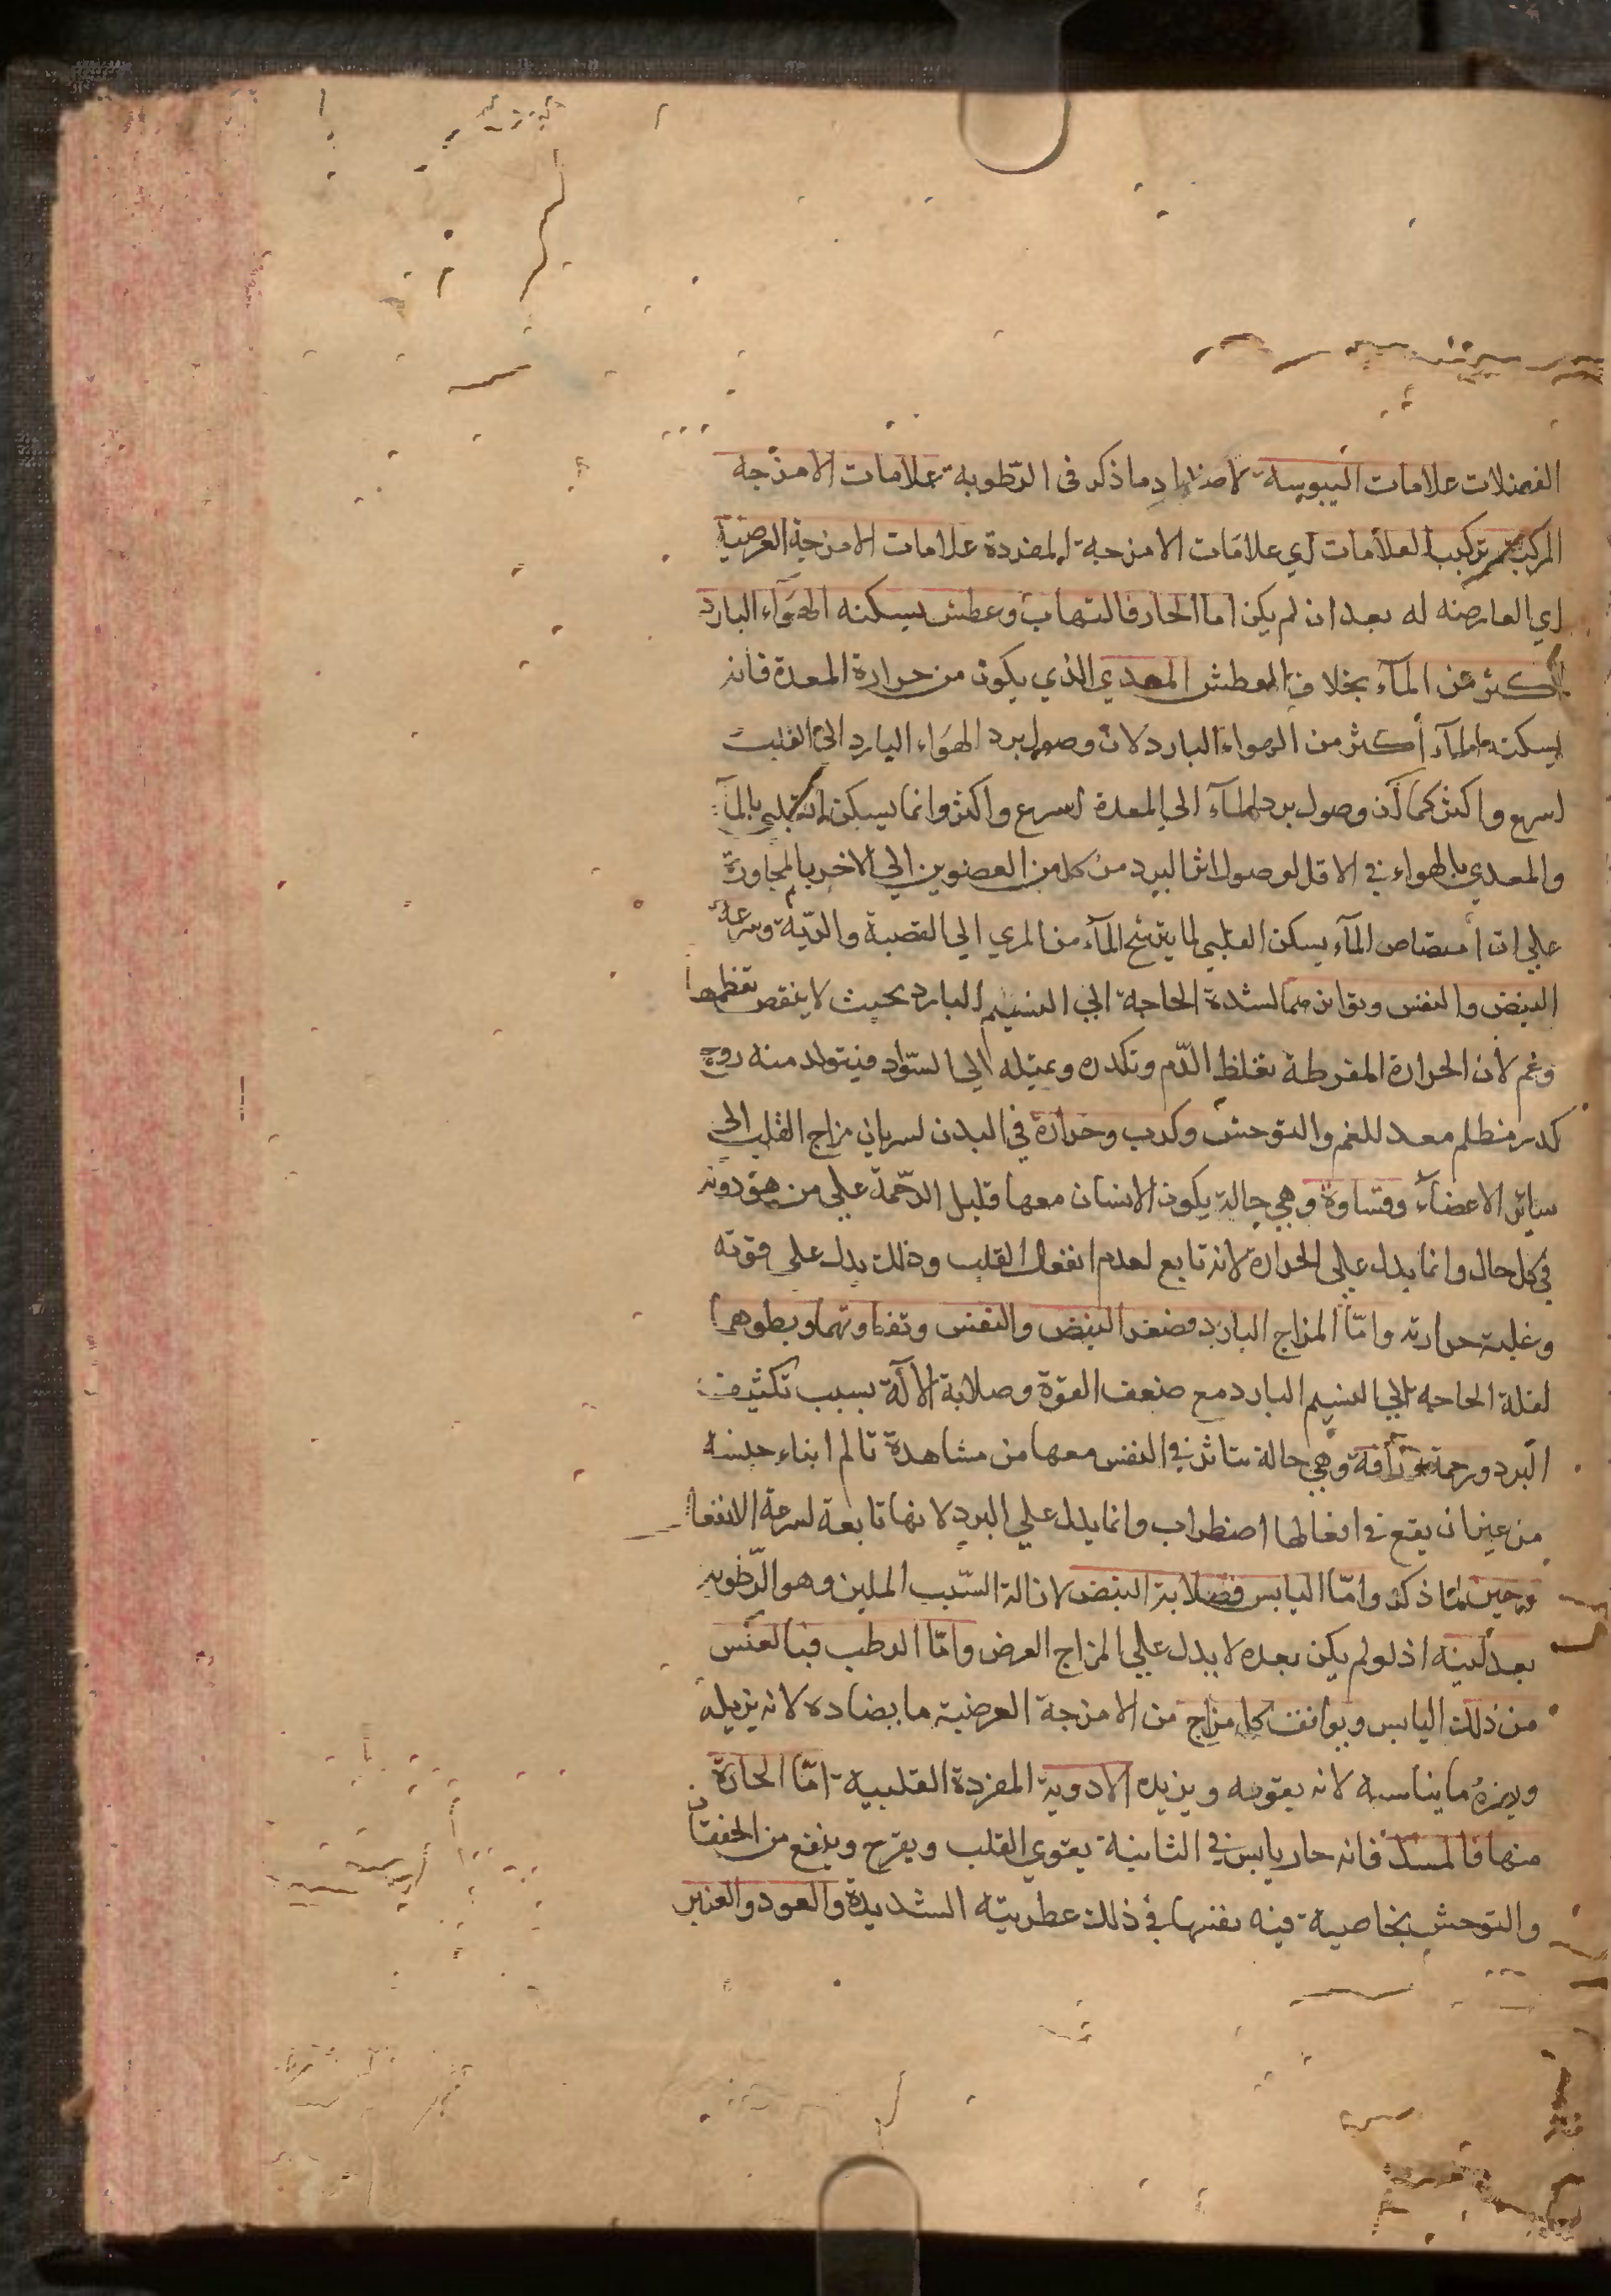 الفضلات علامات اليبوسة لاضداد ما ذكر فى الرّطوبة علامات الامزجه
المركبة تركيب العلامات اي علامات الامزجة المفردة علامات الامزجة العرضية
اي العارضه له بعد ان لم يكن اما الحار فالتهاب وعطش يسكنه الهوَآء البارد
أكثر من المآء بخلاف العطش المعدي الذي يكون من حرارة المعدة فانه
يسكنه المآء أكثر من الهواء البارد لان وصول برد الهوَاء البارد الى القلب
اسرع واكثر كما أن وصول برد المآء الي المعدة اسرع واكثر وانما يسكن القلبي بالمآء
والمعدي بالهواء في الاقل لوصول اثر البرد من كل من العضوين الي الاخر بالمجاورة
علي ان امتصاص المآء يسكن القلبي لما يترشح المآء من المري الي القصبة والريّة وسرعة
النبض والنفس وتواترهما لشدة الحاجة الي النسيم البارد بحيث لا ينقص تعظمهما
وغم لأن الحرارة المفرطة تغلظ الدّم وتكدره وتميله الي السّواد فيتولد منه روح
كدر مظلم معد للغم والتوحش وكرب وحرارة في البدن لسريان مزاج القلب الى
سائر الاعضآء وقساوة وهي حالة يكون الانسان معها قليل الرّحمة علي من هو دونه
في كل حال وانما يدل علي الحرارة لانه تابع لعدم انفعال القلب وذلك يدل على قوته
وغلبة حرارته وامّا المزاج البارد فصغر النبض والنفس وتفاوتهما وبطوهما
لقلة الحاجه الي النسيم البارد مع ضعف القوّة وصلابة الآلة بسبب تكثيف
البرد ورحمة ورأفة وهي حالة تتاثر في النفس معها من مشاهدة تالم ابناء جنسه
من غير ان يقع في افعالها اضطراب وانما يدل علي البرد لانها تابعة لسرعة الانفعال
وجبن لما ذكر وامّا اليابس فصلابة النبض لازالة السّبب الملين وهو الرّطوبه
بعد لينه اذ لو لم يكن بعده لا يدل علي المزاج العرض وامّا الرطب فبالعكس
من ذلك اليابس ويوافق كل مزاج من الامزجة العرضية ما يضاده لانه يزيله
ويضره ما يناسبه لانه يقويه ويزيده الادوية المفردة القلبية امّا الحارّة
منها فالمسك فانه حار يابس في الثانية يقوي القلب ويفرح وينفع من الخفقان
والتوحش بخاصية فيه يعينها في ذلك عطريته الشديدة والعود والعنبر